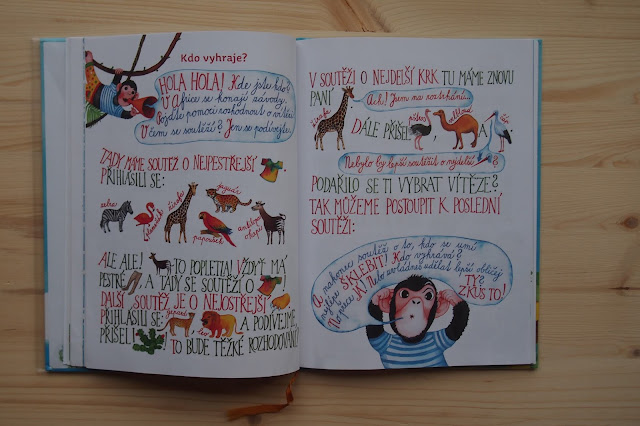 Kdo vyhraje?
HOLA HOLA! Kde jste kdo?
V Africe se konají závody.
Pojďte pomoci rozhodnout o vítězi
V čem se soutěží? Jen se podívejte.
TADY MÁME SOUTĚŽ O NEJPESTŘEJŠÍ
PŘIHLÁSILI SE:
zebra
plameňák
žirafa
jaguár
papoušek
antilopa
okapi
ALE ALE!
TO POPLETLA! VŽDYŤ MÁ
PESTRÉ, A TADY SE SOUTĚŽÍ O
DALŠÍ SOUTĚŽ JE O NEJOSTŘEJŠÍ
PŘIHLÁSILI SE: gepard, lev A PODÍVEJME,
PŘIŠEL I! TO BUDE TĚŽKÉ ROZHODOVÁNÍ!
V SOUTĚŽI O NEJDELŠÍ KRK TU MÁME ZNOVU
PANÍ
Ach! Jsem na roztrhání...
žirafa
DÁLE PŘIŠEL pštros, velbloud A čáp
Nebylo by lepší soutěžit o nejdelší ?
PODAŘILO SE TI VYBRAT VÍTĚZE?
TAK MŮŽEME POSTOUPIT K POSLEDNÍ
SOUTĚŽI:
A nakonec soutěž o to, kdo se umí
nejlépe ŠKLEBIT! Kdo vyhrává?
No přece JÁ! Nebo dovedeš udělat lepší obličej
TY?
ZKUS TO!